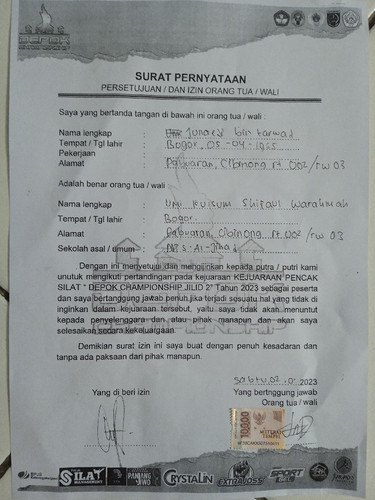 DEPOK
SURAT PERNYATAAN
PERSETUJUAN / DAN IZIN ORANG TUA / WALI
Saya yang bertanda tangan di bawah ini orang tua / wali :
Nama lengkap : Junaedi bin tarwad
Tempat / Tgl lahir : Bogor, 05-04-1965
Pekerjaan :
Alamat : Pabuaran, Cibinong rt 002/rw 03
Adalah benar orang tua / wali :
Nama lengkap : Umi Kulsum Shifaul Warahmah
Tempat / Tgl lahir : Bogor
Alamat : Pabuaran, Cibinong rt 002/rw 03
Sekolah asal / umum : Al-Jihad
Dengan ini menyetujui dan mengijinkan kepada putra / putri kami
unutuk mengikuti pertandingan pada kejuaraan KEJUARAAN PENCAK
SILAT " DEPOK CHAMPIONSHIP JILID 2" Tahun 2023 sebagai peserta
dan saya bertanggung jawab penuh jika terjadi sesuatu hal yang tidak di
inginkan dalam kejuaraan tersebut, yaitu saya tidak akan menuntut
kepada penyelenggara dan atau pihak manapun dan akan saya
selesaikan secara kekeluargaan.
Demikian surat izin ini saya buat dengan penuh kesadaran dan
tanpa ada paksaan dari pihak manapun.
Sabtu, 2023
Yang di beri izin
Yang bertnggung jawab
Orang tua / wali
10000
METERAI
TEMPEL
SILAT
PANJANG JIWO
CRYSTALIN
EXTRA JOSS
SPORT